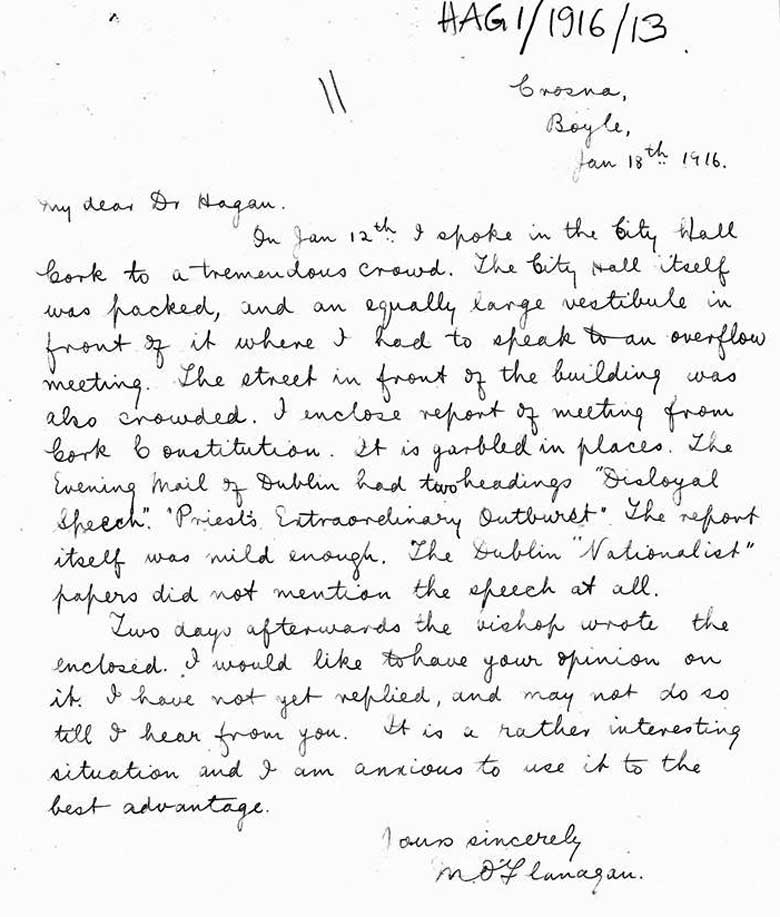 HAG1/1916/13
Crosna,
Boyle,
Jan 18th 1916.
My dear Dr Hagan.
On Jan 12th I spoke in the City Hall
Cork to a tremendous crowd. The City Hall itself
was packed, and an equally large vestibule in
front of it where I had to speak to an overflow
meeting. The street in front of the building was
also crowded. I enclose report of meeting from
Cork Constitution. It is garbled in places. The
Evening Mail of Dublin had two headings "Disloyal
Speech". "Priest's Extraordinary Outburst". The report
itself was mild enough. The Dublin "Nationalist"
papers did not mention the speech at all.
Two days afterwards the bishop wrote the
enclosed. I would like to have your opinion on
it. I have not yet replied, and may not do so
till I hear from you. It is a rather interesting
situation and I am anxious to use it to the
best advantage.
Yours sincerely
M. O'Flanagan.